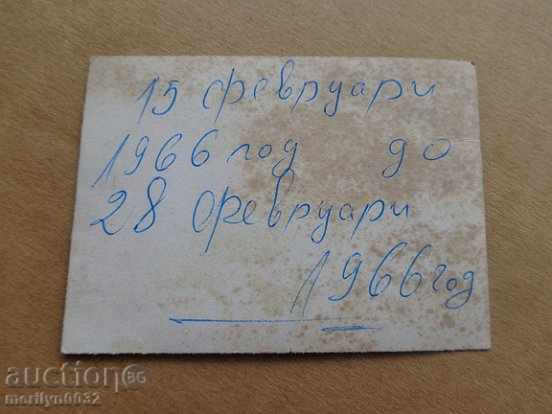 15 февруари
1966 год до
28 февруари
1966 год
auction.BG
marilyn0032